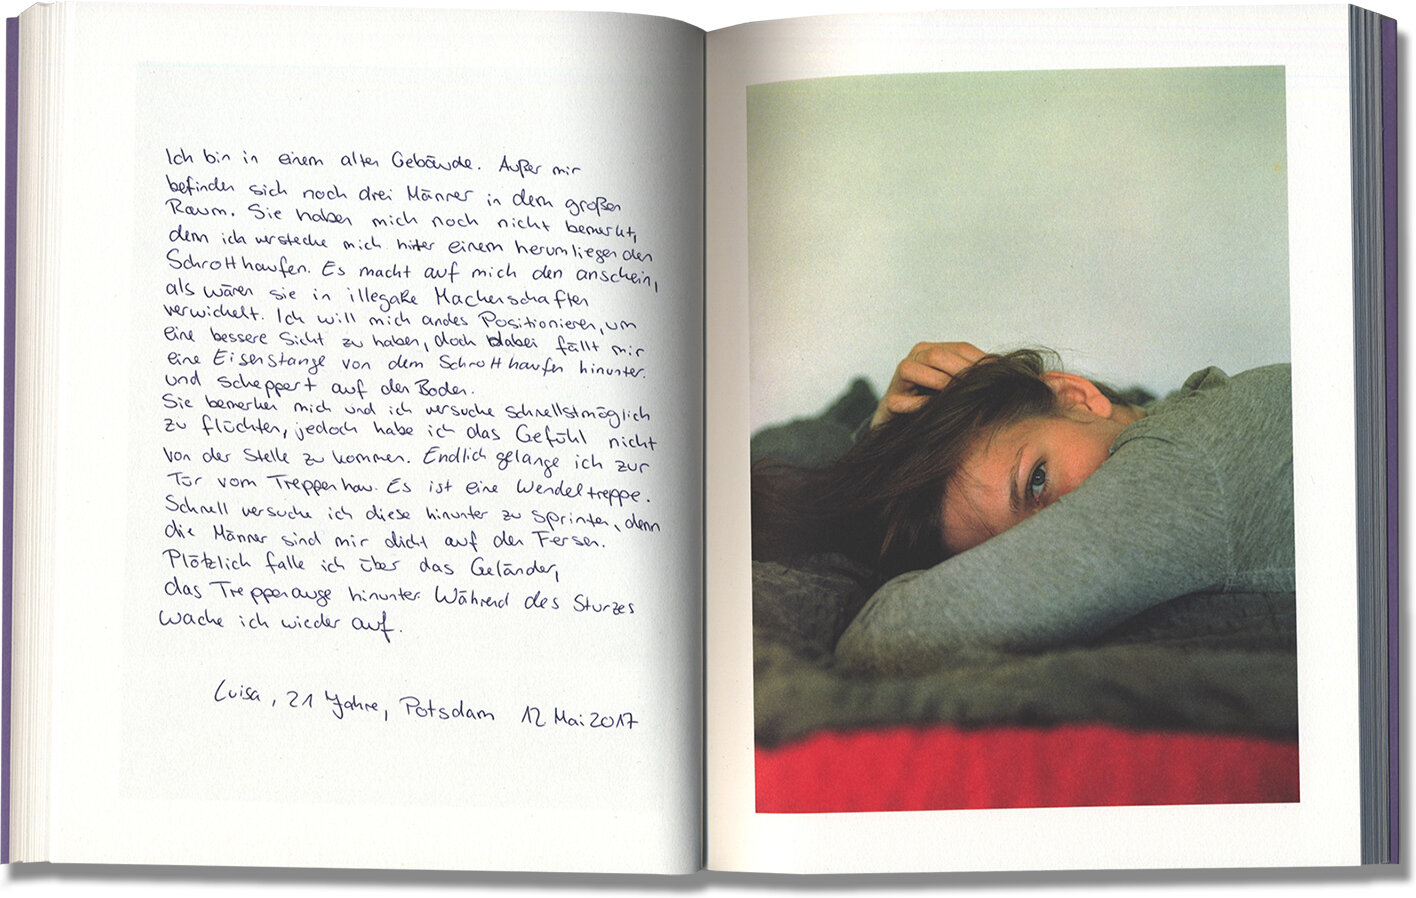 Ich bin in einem alten Gebäude. Außer mir
befinden sich noch drei Männer in dem großen
Raum. Sie haben mich noch nicht bemerkt,
denn ich verstecke mich hinter einem herumliegenden
Schrotthaufen. Es macht auf mich den anschein,
als wären sie in illegale Machenschaften
verwickelt. Ich will mich anders Positionieren, um
eine bessere Sicht zu haben, doch dabei fällt mir
eine Eisenstange von dem Schrotthaufen hinunter
und scheppert auf den Boden.
Sie bemerken mich und ich versuche schnellstmöglich
zu flüchten, jedoch habe ich das Gefühl nicht
von der Stelle zu kommen. Endlich gelange ich zur
Tür vom Treppenhaus. Es ist eine Wendeltreppe.
Schnell versuche ich diese hinunter zu sprinten, denn
die Männer sind mir dicht auf den Fersen.
Plötzlich falle ich über das Geländer,
das Treppenauge hinunter Während des Sturzes
wache ich wieder auf.
Luisa, 21 Jahre, Potsdam 12 Mai 2017